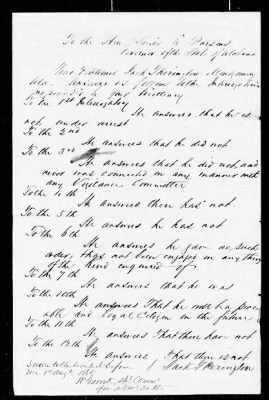 To the Hon. Lewis E Parsons
Governor of the State of Alabama
Your Petitioner Jack Thorington Montgomery
Ala. answers as follows to the Interrogatories
propounded by your Excellency
To the 1st Interrogatory
He answers that he is
not under arrest
To the 2nd
He answers that he did not
To the 3rd
He answers that he did not, and
never was connected in any manner with
any Vigilance Committee
To the 4th
He answers there has not.
To the 5th
He answers he has not
To the 6th
He answers he gave no such
order, & has not been engaged in anything
of the kind enquired of
To the 7th
He answers that he was
To the 10th
He answers That he will be a peace
able and loyal Citizen in the future
To the 11th
He answers That there have not
To the 13th
He answers That there is not
Sworn to & subscribed before Jack Thorington
me 1st Augt 1865